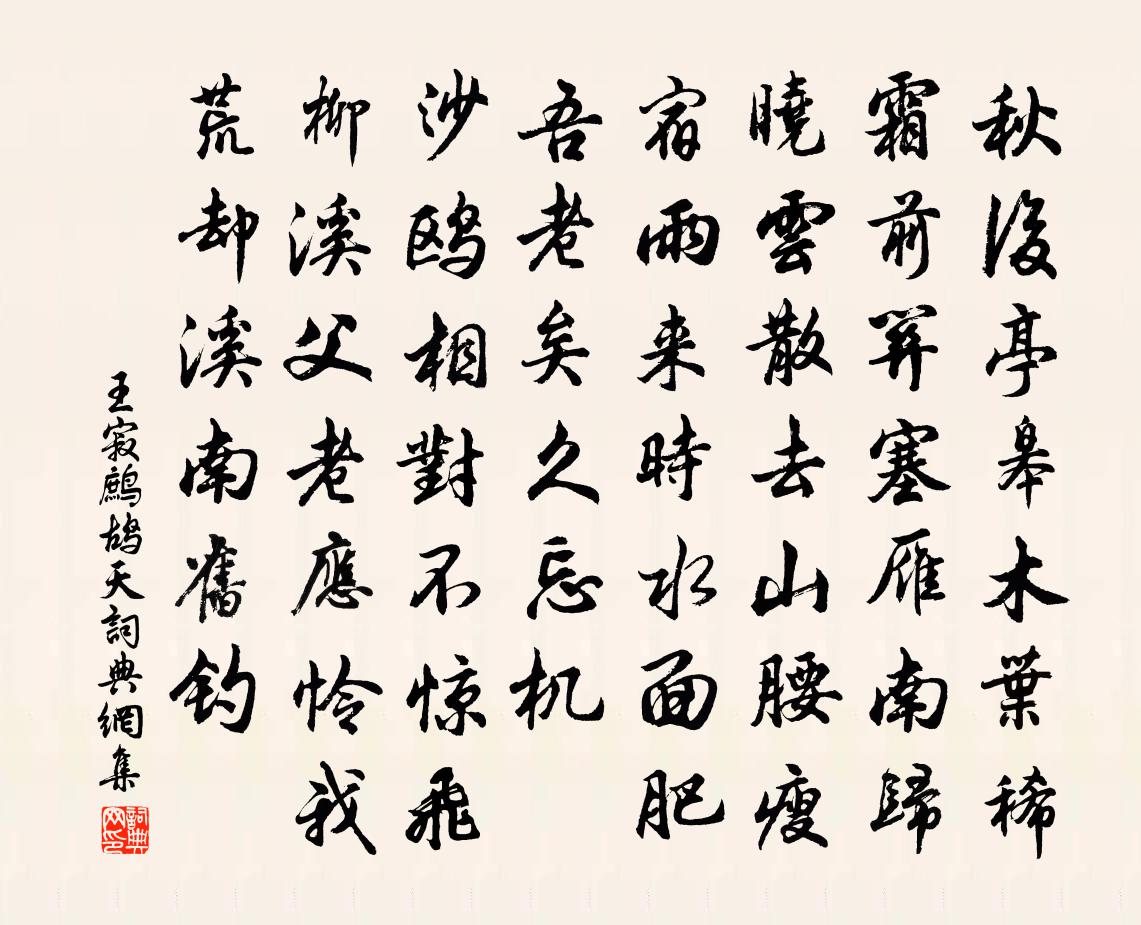 秋後亭皋木葉稀
霜前關塞雁南歸
曉雲散去山腰瘦
宿雨来時水面肥
吾老矣久忘机
沙鸥相對不惊飛
柳溪父老應怜我
荒却溪南舊钓
王寂鷓鴣天詞典網集
詞典网印